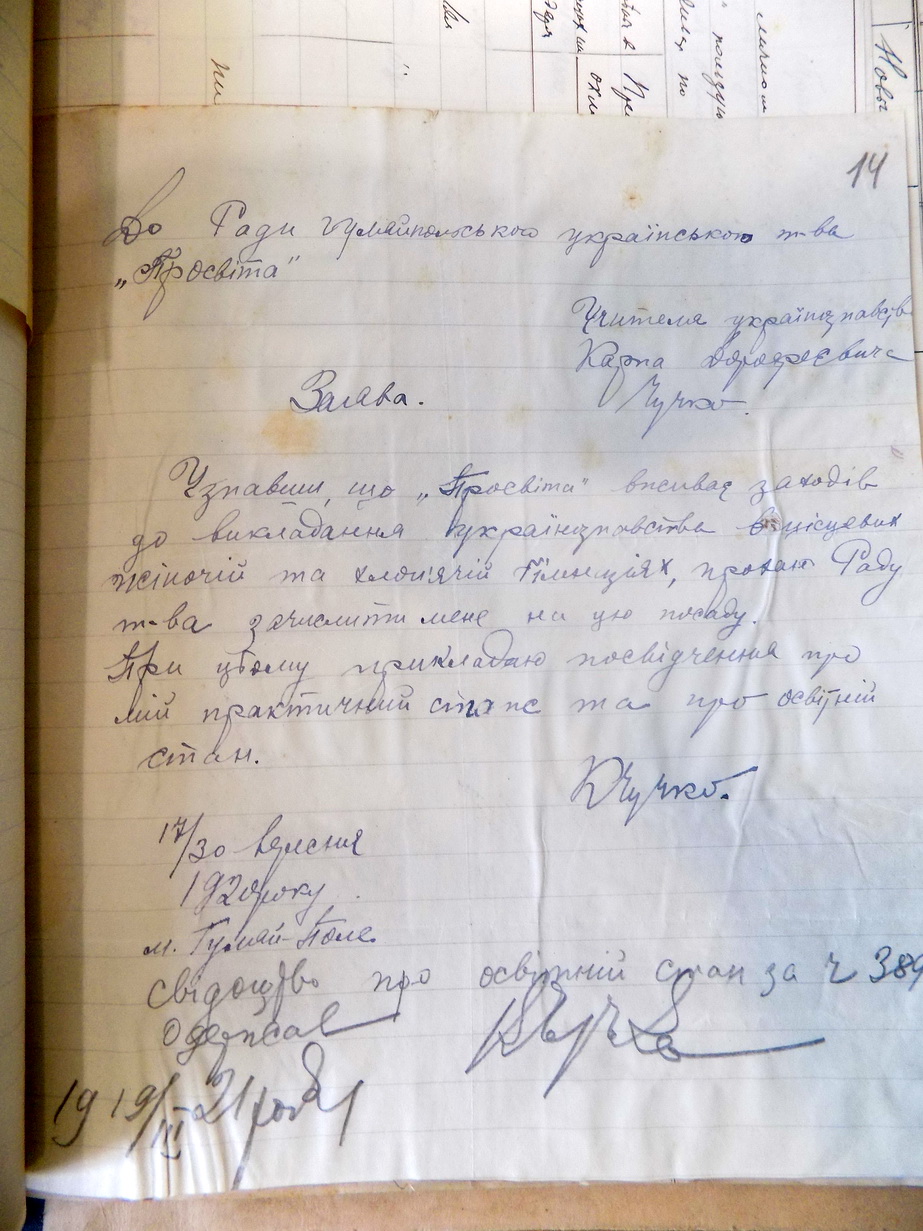 14
До Ради Гуляйпольського українського т-ва
„Просвіта"
Учителя українознавств
Карпа Дорофеєвича
Чучко.
Заява.
Узнавши, що „Просвіта" вживає заходів
до викладання українознавства в місцевих
жіночій та хлопʼячій гімназіях, прохаю Раду
т-ва зачислити мене на цю посаду.
При цьому прикладаю посвідчення про
мій практичний стаж та про освітній
стан.
КЧучко.
17/30 вересня
1920 року
м. Гуляй-Поле
Свідоцтво про освітній стан за ч 389
одержав
КЧучко
19 19/III 21 року